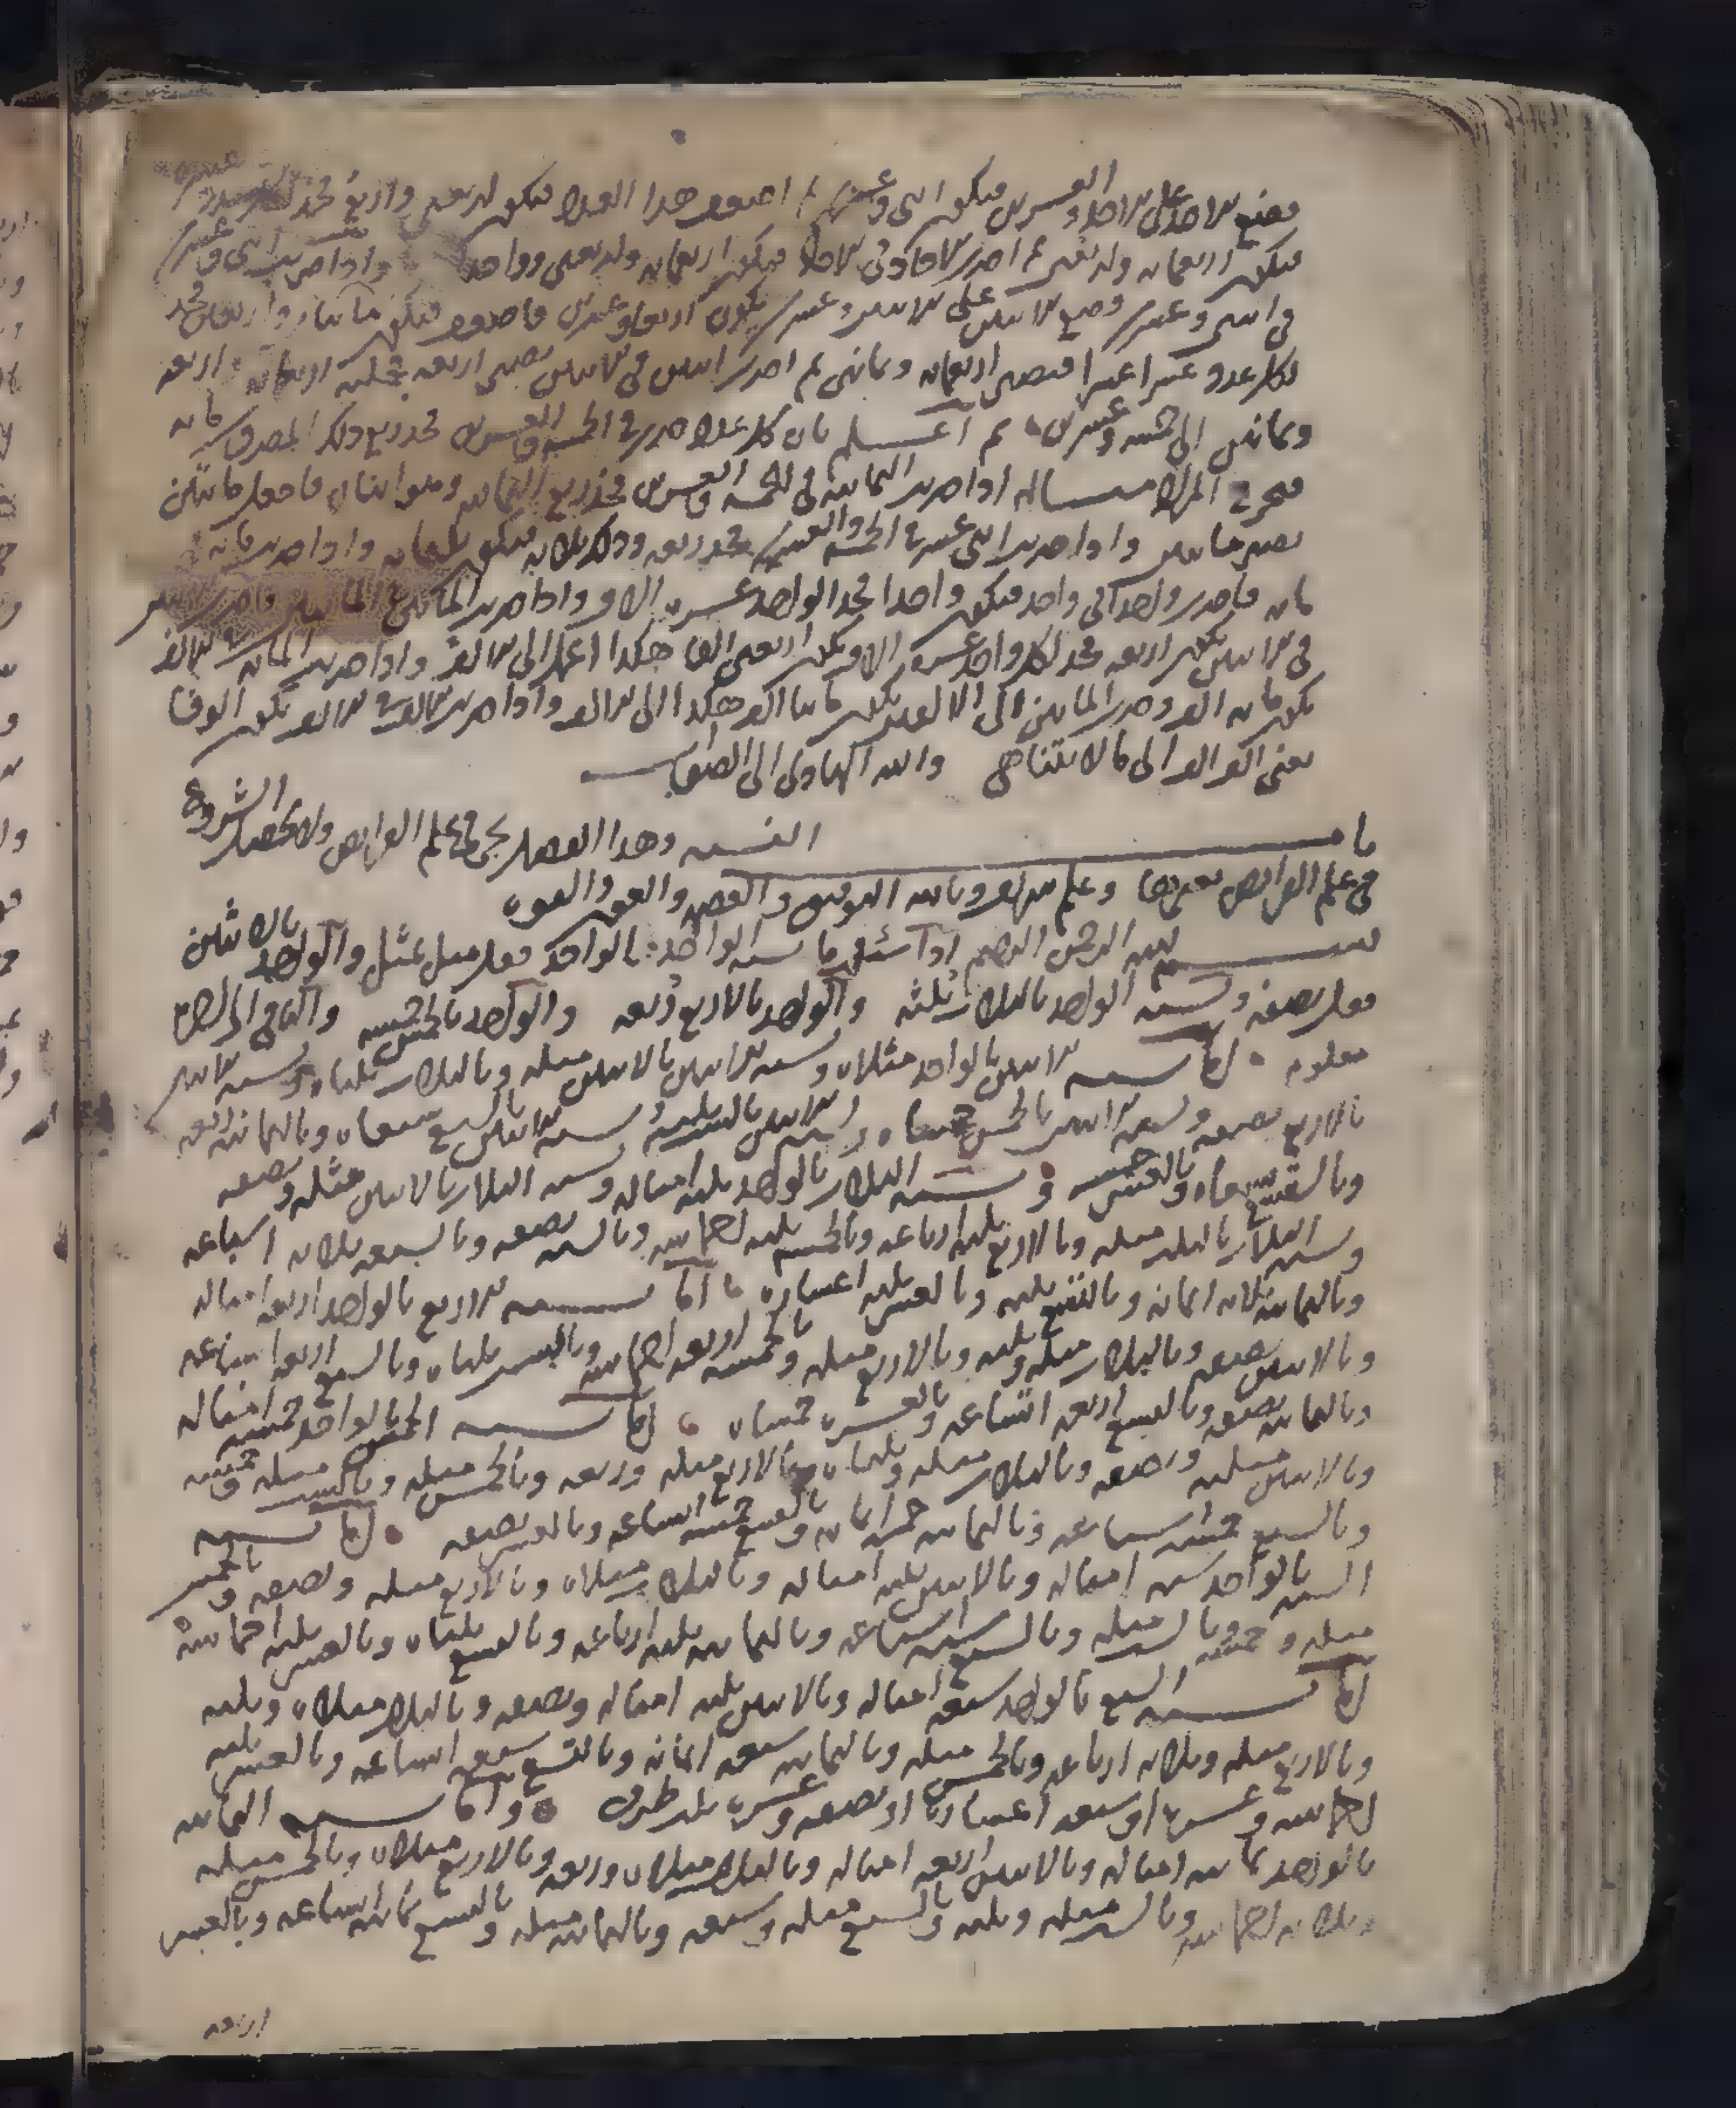 فضع الاحد على الاحد والعشرين فيكون اثنى وعشرين ثم اضعف هذا العدد فيكون اربعين واربع فخذ لكل
فيكون اربعمايه واربعين ثم اضرب الاحاد في الاحاد فيكون اربعمايه واربعين وواحد واذا ضربت اثنى وعشرين
في اثنى وعشرين وضع الاثنين على الاثنين وعشرين يكون اربعا وعشرين فاضعف فيكون ثمانيا واربعين فخذ
لكل عدد عشرا عشرا فتصير اربعمايه وثمانين ثم اضرب اثنين في الاثنين تصير اربعه فجملته اربعمايه اربعه
وثمانين الى خمسه وعشرين ثم اعلم بان كل عدد ضربت في الخمسه والعشرين فخذ ربع ذلك المضروب مايه
فخرج المراد مساله اذا ضربت الثمانيه في الخمسه والعشرين فخذ ربع الثمانيه وهو اثنان فاجعل مائتين
تصير مائتين واذا ضربت اثنى عشر في الخمسه والعشرين فخذ ربعه وذلك ثلاثه فيكون ثلثمايه واذا ضربت مايه في
مايه فاضرب واحدا في واحد فيكون واحدا فخذ الواحد عشره الاف واذا ضربت المائتين في المائتين فاضرب الاثنين
في الاثنين يكون اربعه فخذ لكل واحد عشره الاف يكون اربعين الفا هكذا اعمل الى الالف واذا ضربت المايه في الالف
يكون مايه الف وضرب المائتين الى الالف يكون مائتا الف هكذا الى الالف واذا ضربت الالف في الالف يكون الوفا
يعنى الف الف الى مالا يتناهى والله الهادى الى الصواب
باب النسبه وهذا الفصل يجى في علم الفرايض ولا يحصل الشروع
في علم الفرايض بغيرها وعلم سهل وبالله التوفيق والعصمه والعون والقوه
بسم الله الرحمن الرحيم اذا سئلت ما نسبه الواحد بالواحد فقل مثل بمثل والواحد بالاثنين
فقل نصفه ونسبه الواحد بالثلاث ثلثه والواحد بالاربع ربعه والواحد بالخمس خمسه والباقي الى العشره
معلوم اما نسبه الاثنين بالواحد مثلاه ونسبه الاثنين بالاثنين مثله وبالثلاث ثلثاه ونسبه الاثنين
بالاربع نصفه ونسبه الاثنين بالخمس خمساه ونسبه الاثنين بالسته ثلثه ونسبه الاثنين بالسبع سبعاه وبالثمانيه ربعه
وبالتسع تسعاه وبالعشر خمسه ونسبه الثلاث بالواحد ثلثه امثاله ونسبه الثلاث بالاثنين مثله ونصفه
ونسبه الثلاث بالثلث مثله وبالاربع ثلثه ارباعه وبالخمسه ثلثه اخماسه وبالسته نصفه وبالسبعه ثلاثه اسباعه
وبالثمانيه ثلاثه اثمانه وبالتسع ثلثه وبالعشر ثلثه اعشاره اما نسبه الاربع بالواحد اربعه امثاله
وبالاثنين ضعفه وبالثلاث مثله وثلثه وبالاربع مثله وبالخمسه اربعه اخماسه وبالست ثلثاه وبالسبع اربعه اسباعه
وبالثمانيه نصفه وبالتسع اربعه اتساعه وبالعشره خمساه اما نسبه الخمس بالواحد خمسه امثاله
وبالاثنين مثليه ونصفه وبالثلاث مثله وثلثاه وبالاربع مثله وربعه وبالخمس مثله وبالست خمسه
وبالسبع خمسه اسباعه وبالثمانيه خمسه اثمانه وبالتسع خمسه اتساعه وبالعشر نصفه اما نسبه
السته بالواحد سته امثاله وبالاثنين ثلثه امثاله وبالثلاث مثلاه وبالاربع مثله ونصفه وبالخمس
مثله وخمسه وبالسته مثله وبالسبع سته اسباعه وبالثمانيه ثلثه ارباعه وبالتسع ثلثاه وبالعشر ثلثه اخماسه
اما نسبه السبع بالواحد سبعه امثاله وبالاثنين ثلثه امثاله ونصفه وبالثلاث مثلاه وثلثه
وبالاربع مثله وثلاثه ارباعه وبالخمس مثله وبالثمانيه سبعه اثمانه وبالتسع سبعه اتساعه وبالعشر ثلثه
اخماسه وعشره او سبعه اعشاره او نصفه وعشره ثلث طرق واما نسبه الثمانيه
بالواحد ثمانيه امثاله وبالاثنين اربعه امثاله وبالثلاث مثلاه وربعه وبالاربع مثلاه وبالخمس مثله
وثلاثه اخماسه وبالسته مثله وثلثه وبالسبع مثله وسبعه وبالثمانيه مثله وبالتسع ثمانيه اتساعه وبالعشر
اربعه